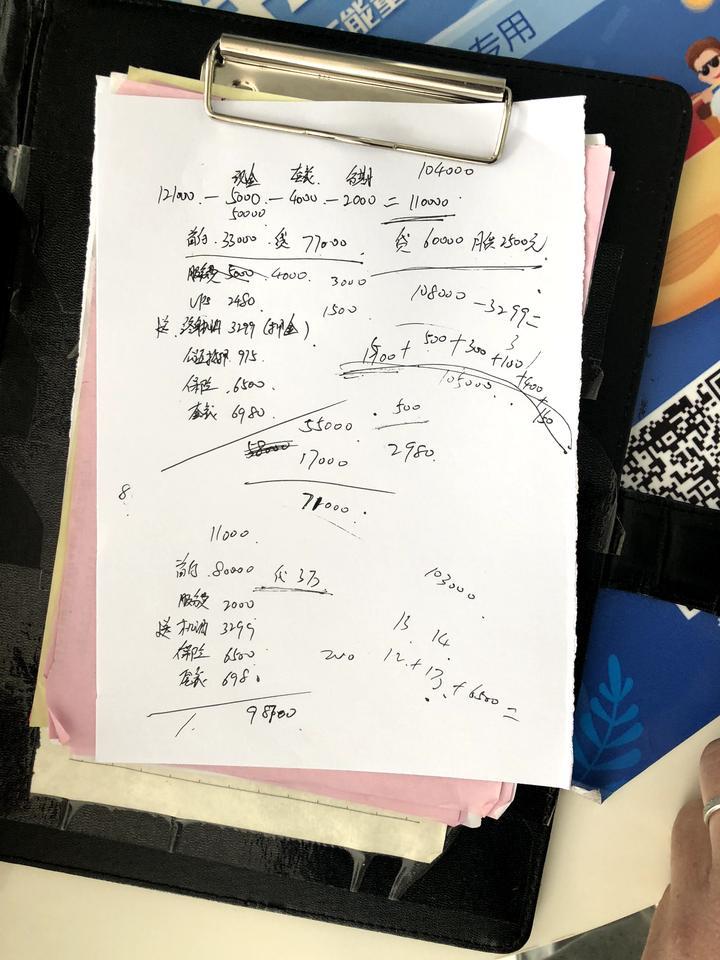 专用
现金 套 台 104000
121000 - 5000 - 4000 - 2000 = 110000
50000
首付 33000 贷 77000 贷 60000 月供 2500元
服务费 5000 4000 3000
UPS 2480 1500 108000 - 3299 =
送 机油 3299 (现金)
915 1500 + 500 + 300 + 100 + 400 + 150
保险 6500 105000
6980 500
55000
58000 2980
17000
8.
71000
11000
首付 80000 代 3万 103000
服务费 2000
送 机油 3299 13 14
保险 6500 200 12 + 13 + 6500 =
6980
98700